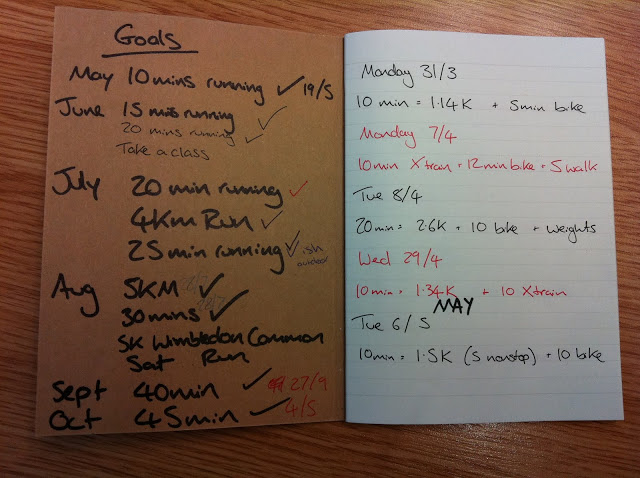 Goals
May 10 mins running ✓ 19/5
June 15 mins running ✓
20 mins running ✓
Take a class
July 20 min running ✓
4Km Run ✓
25 min running ✓ ish
outdoor
Aug 5KM ✓
30mins ✓
5K Wimbledon Common
Sat Run
Sept 40min ✓ 27/9
Oct 45min ✓ 4/5
Monday 31/3
10 min = 1.14K + 5min bike
Monday 7/4
10min Xtrain + 12min bike + 5 walk
Tue 8/4
20min = 2.6K + 10 bike + weights
Wed 29/4
10min = 1.34K + 10 Xtrain
MAY
Tue 6/5
10min = 1.5K (5 nonstop) + 10 bike